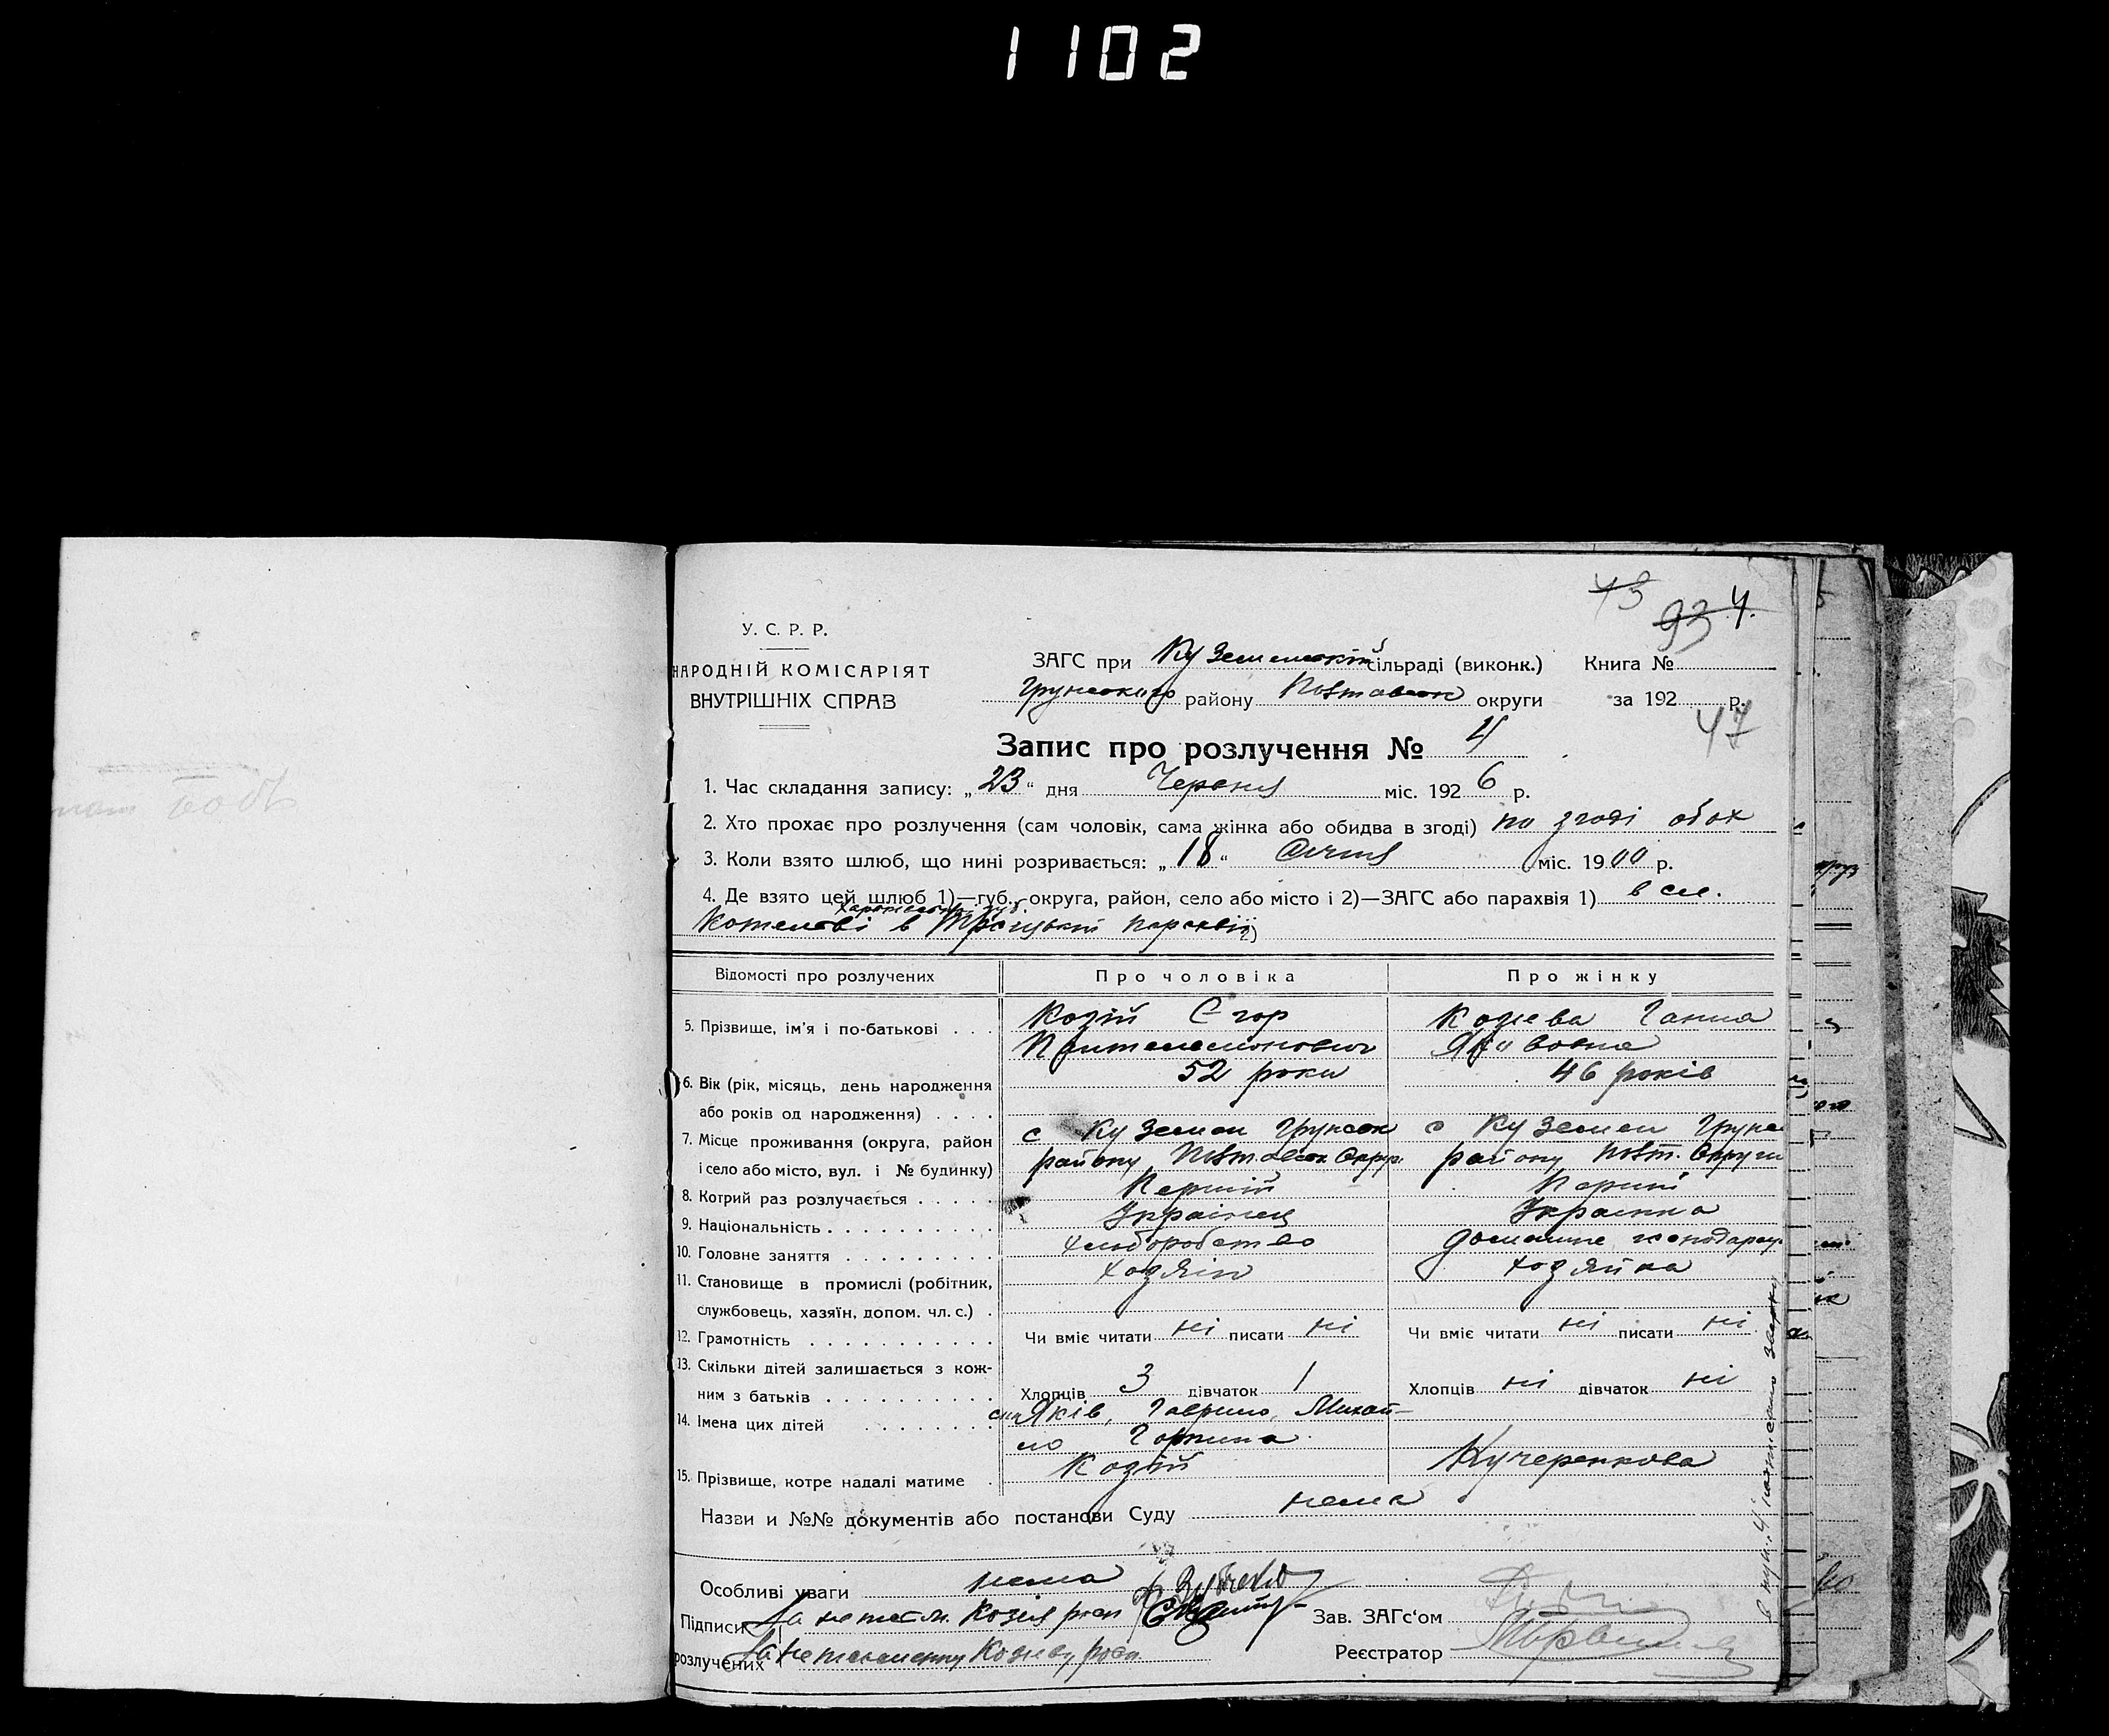 1102
43
93 4.
У. С. Р. Р.
НАРОДНІЙ КОМІСАРІЯТ
ВНУТРІШНІХ СПРАВ
ЗАГС при Куземенській сільраді (виконк.) Книга №
Грунського району Полтавськ округи за 192 р.
47
Запис про розлучення № 4
1. Час складання запису: „23“ дня Червня міс. 1926 р.
2. Хто прохає про розлучення (сам чоловік, сама жінка або обидва в згоді) по згоді обох
3. Коли взято шлюб, що нині розривається: „18“ Січня міс. 1900 р.
4. Де взято цей шлюб 1)—губ., округа, район, село або місто і 2)—ЗАГС або парахвія 1) в сл.
Харківської губ.
Котельві в Троіцькій парахвії 2)
Відомості про розлучених Про чоловіка Про жінку
5. Прізвище, ім'я і по-батькові Козій Єгор Козіева Ганна
Пантелемонович Яківовна
6. Вік (рік, місяць, день народження 52 роки 46 років
або років од народження)
7. Місце проживання (округа, район с Куземен Грунськ с Куземен Грунс
і село або місто, вул. і № будинку) району Полтавськ Округ. району Полт. Округи
8. Котрий раз розлучається Перший Перший
9. Національність Українец Українка
10. Головне заняття хліборобство домашне господарсу
11. Становище в промислі (робітник, хозяін хозяйка
службовець, хазяїн, допом. чл. с.)
12. Грамотність Чи вміє читати ні писати ні Чи вміє читати ні писати ні
13. Скільки дітей залишається з кож-
ним з батьків Хлопців 3 дівчаток 1 Хлопців ні дівчаток ні
14. Імена цих дітей Яків, Гаврило, Михай-
ло Горпина
15. Прізвище, котре надалі матиме Козій Кучеренкова
Назви и №№ документів або постанови Суду нема
Особливі уваги нема
Підписи За неписьм. Козія росп
Зав. ЗАГс'ом
розлучених За неписьменну Козіеву росп.
Реєстратор